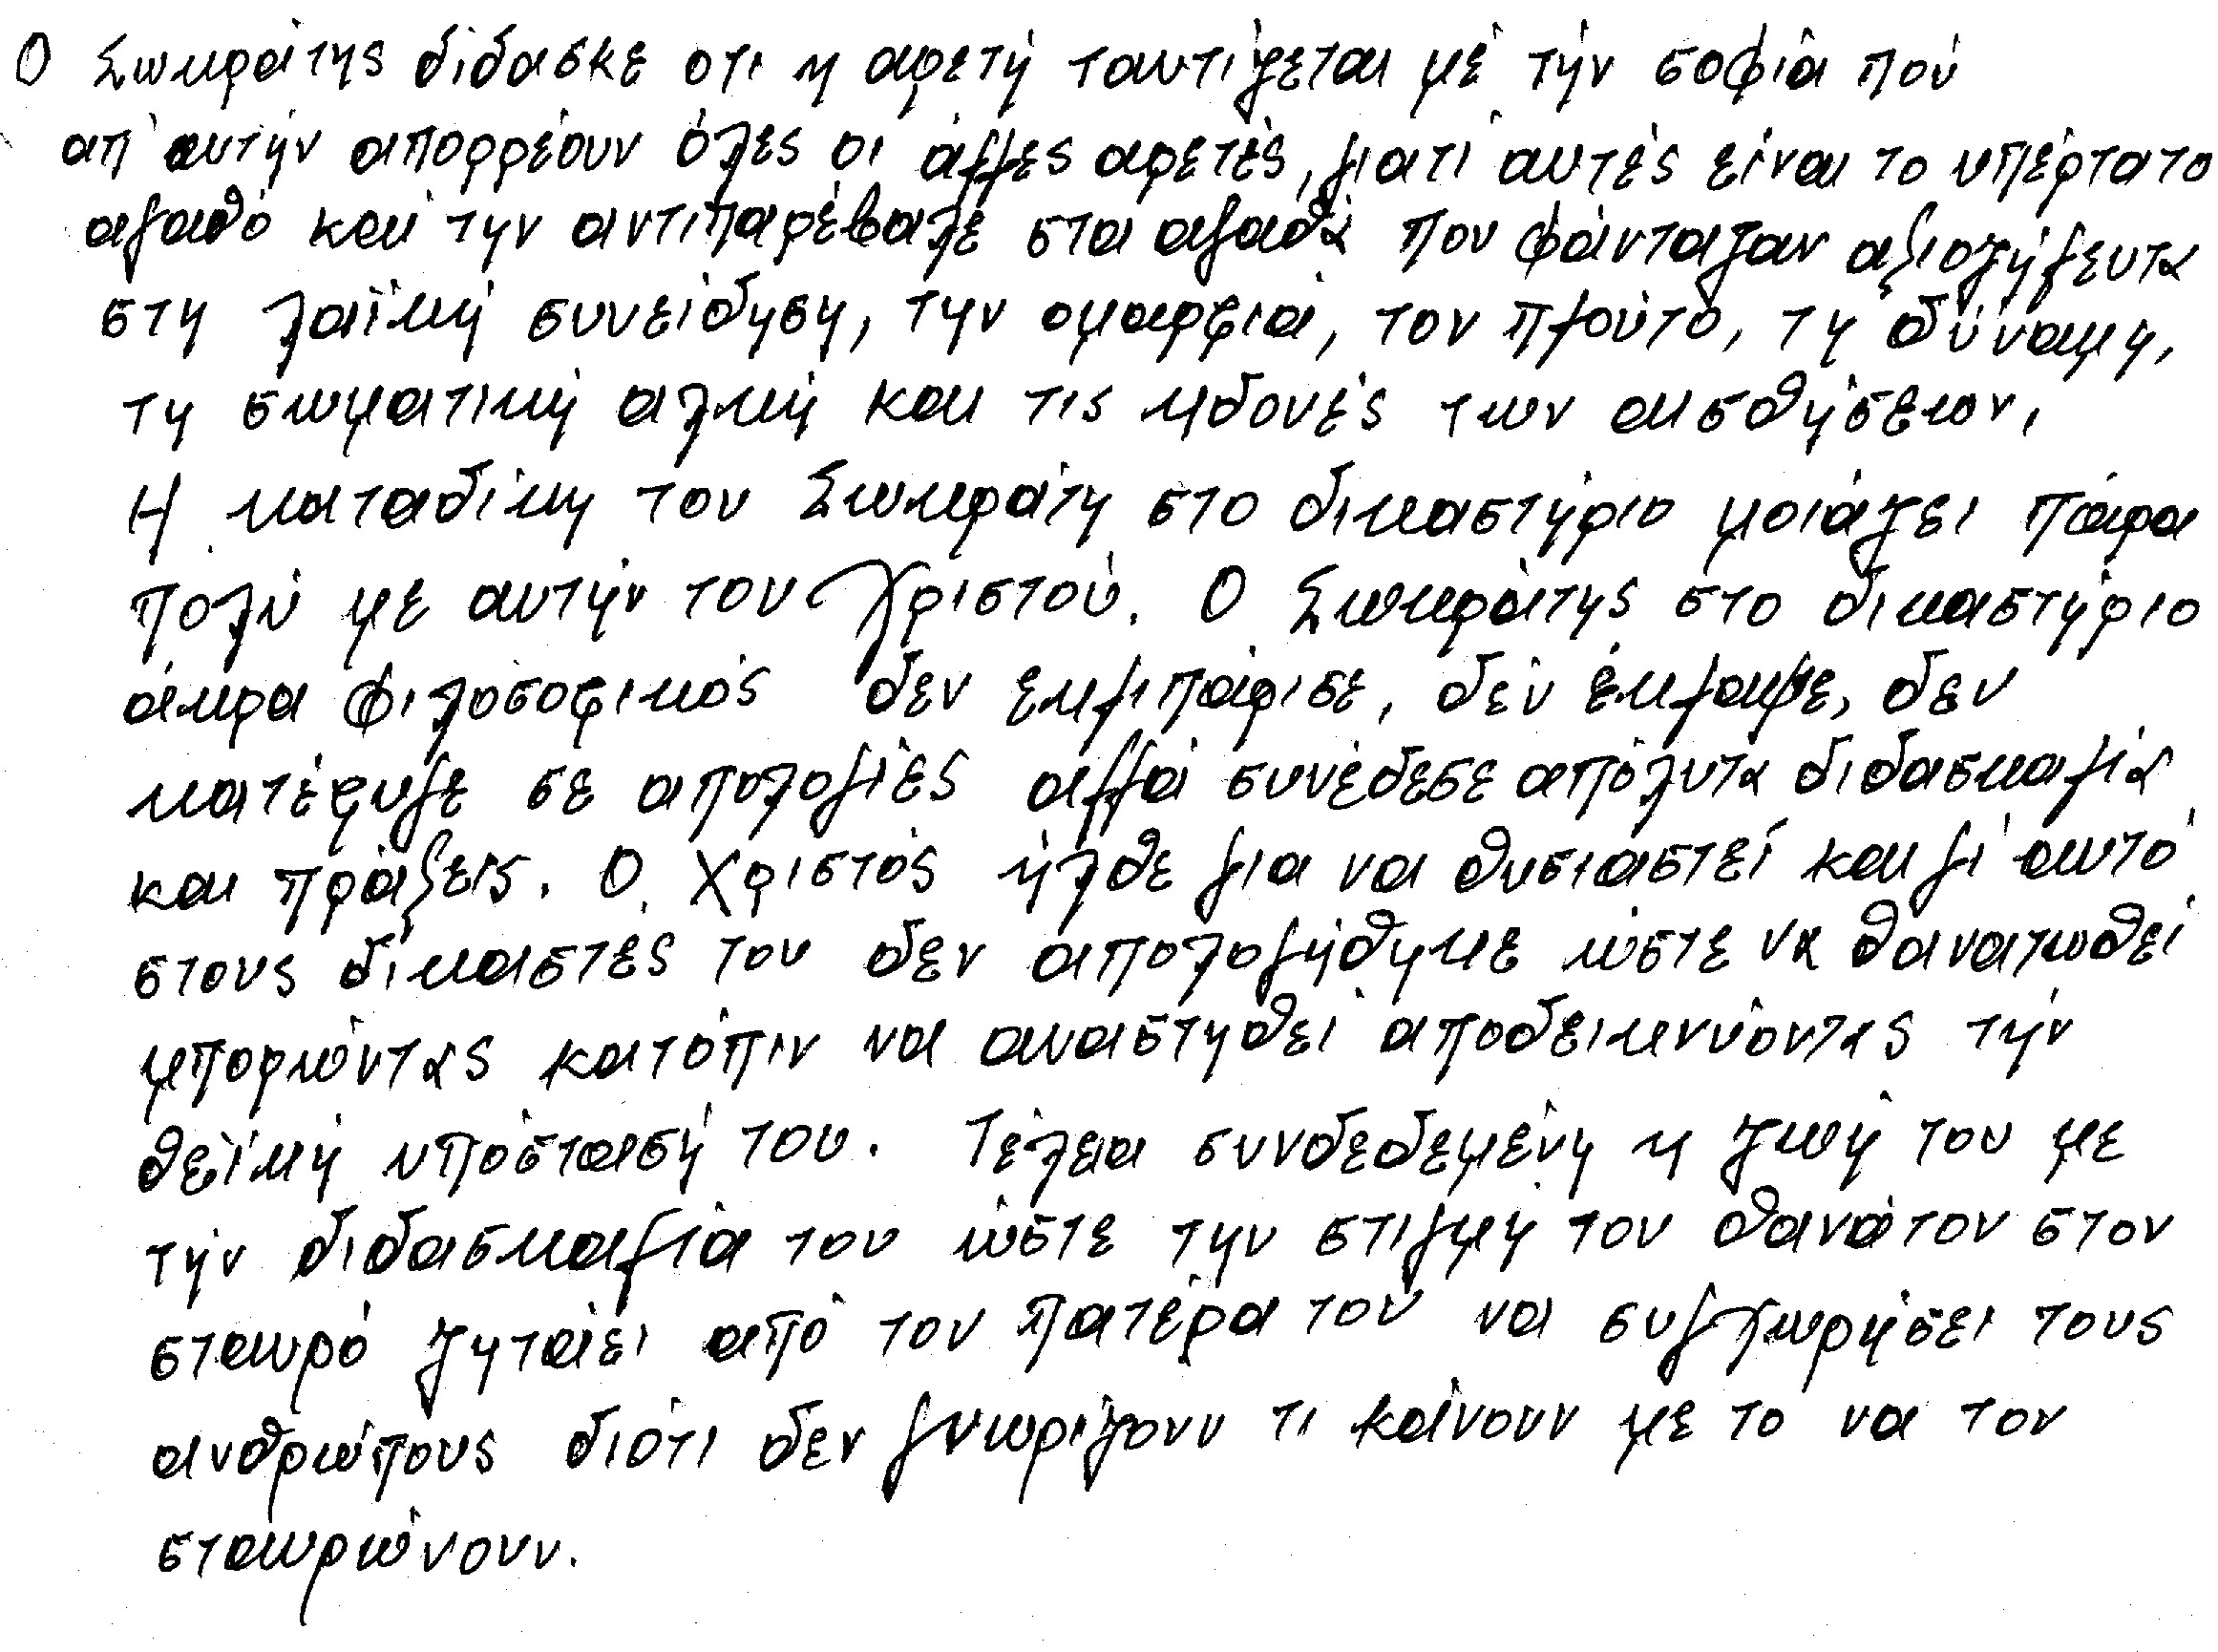 Ο Σωκράτης δίδασκε οτι η αρετή ταυτίζεται μέ τήν σοφία πού
απ' αυτήν απορρέουν όλες οι άλλες αρετές, γιατί αυτές είναι το υπέρτατο
αγαθό και την αντιπαρέβαλε στα αγαθά που φάνταζαν αξιοζήλευτα
στη λαϊκή συνείδηση, την ομορφιά, τον πλούτο, τη δύναμη,
τη σωματική αλκή και τις ηδονές των αισθήσεων,
Η καταδίκη του Σωκράτη στο δικαστήριο μοιάζει πάρα
πολύ με αυτήν του Χριστού. Ο Σωκράτης στο δικαστήριο
άκρα φιλοσοφικός δεν εκλιπάρισε, δέν έκλαψε, δεν
κατέφυγε σε απολογίες αλλά συνέδεσε απόλυτα διδασκαλία
και πράξεις. Ο Χριστός ήλθε για να θυσιαστεί και γι' αυτό
στους δικαστές του δεν απολογήθηκε ώστε να θανατωθεί
μπορώντας κατόπιν να αναστηθεί αποδεικνύοντας τήν
θεϊκή υπόστασή του. Τέλεια συνδεδεμένη η ζωή του με
τήν διδασκαλία του ώστε την στιγμή του θανάτου στον
σταυρό ζητάει από τον πατέρα του να συγχωρήσει τους
ανθρώπους διότι δεν γνωρίζουν τι κάνουν με το να τον
σταυρώνουν.